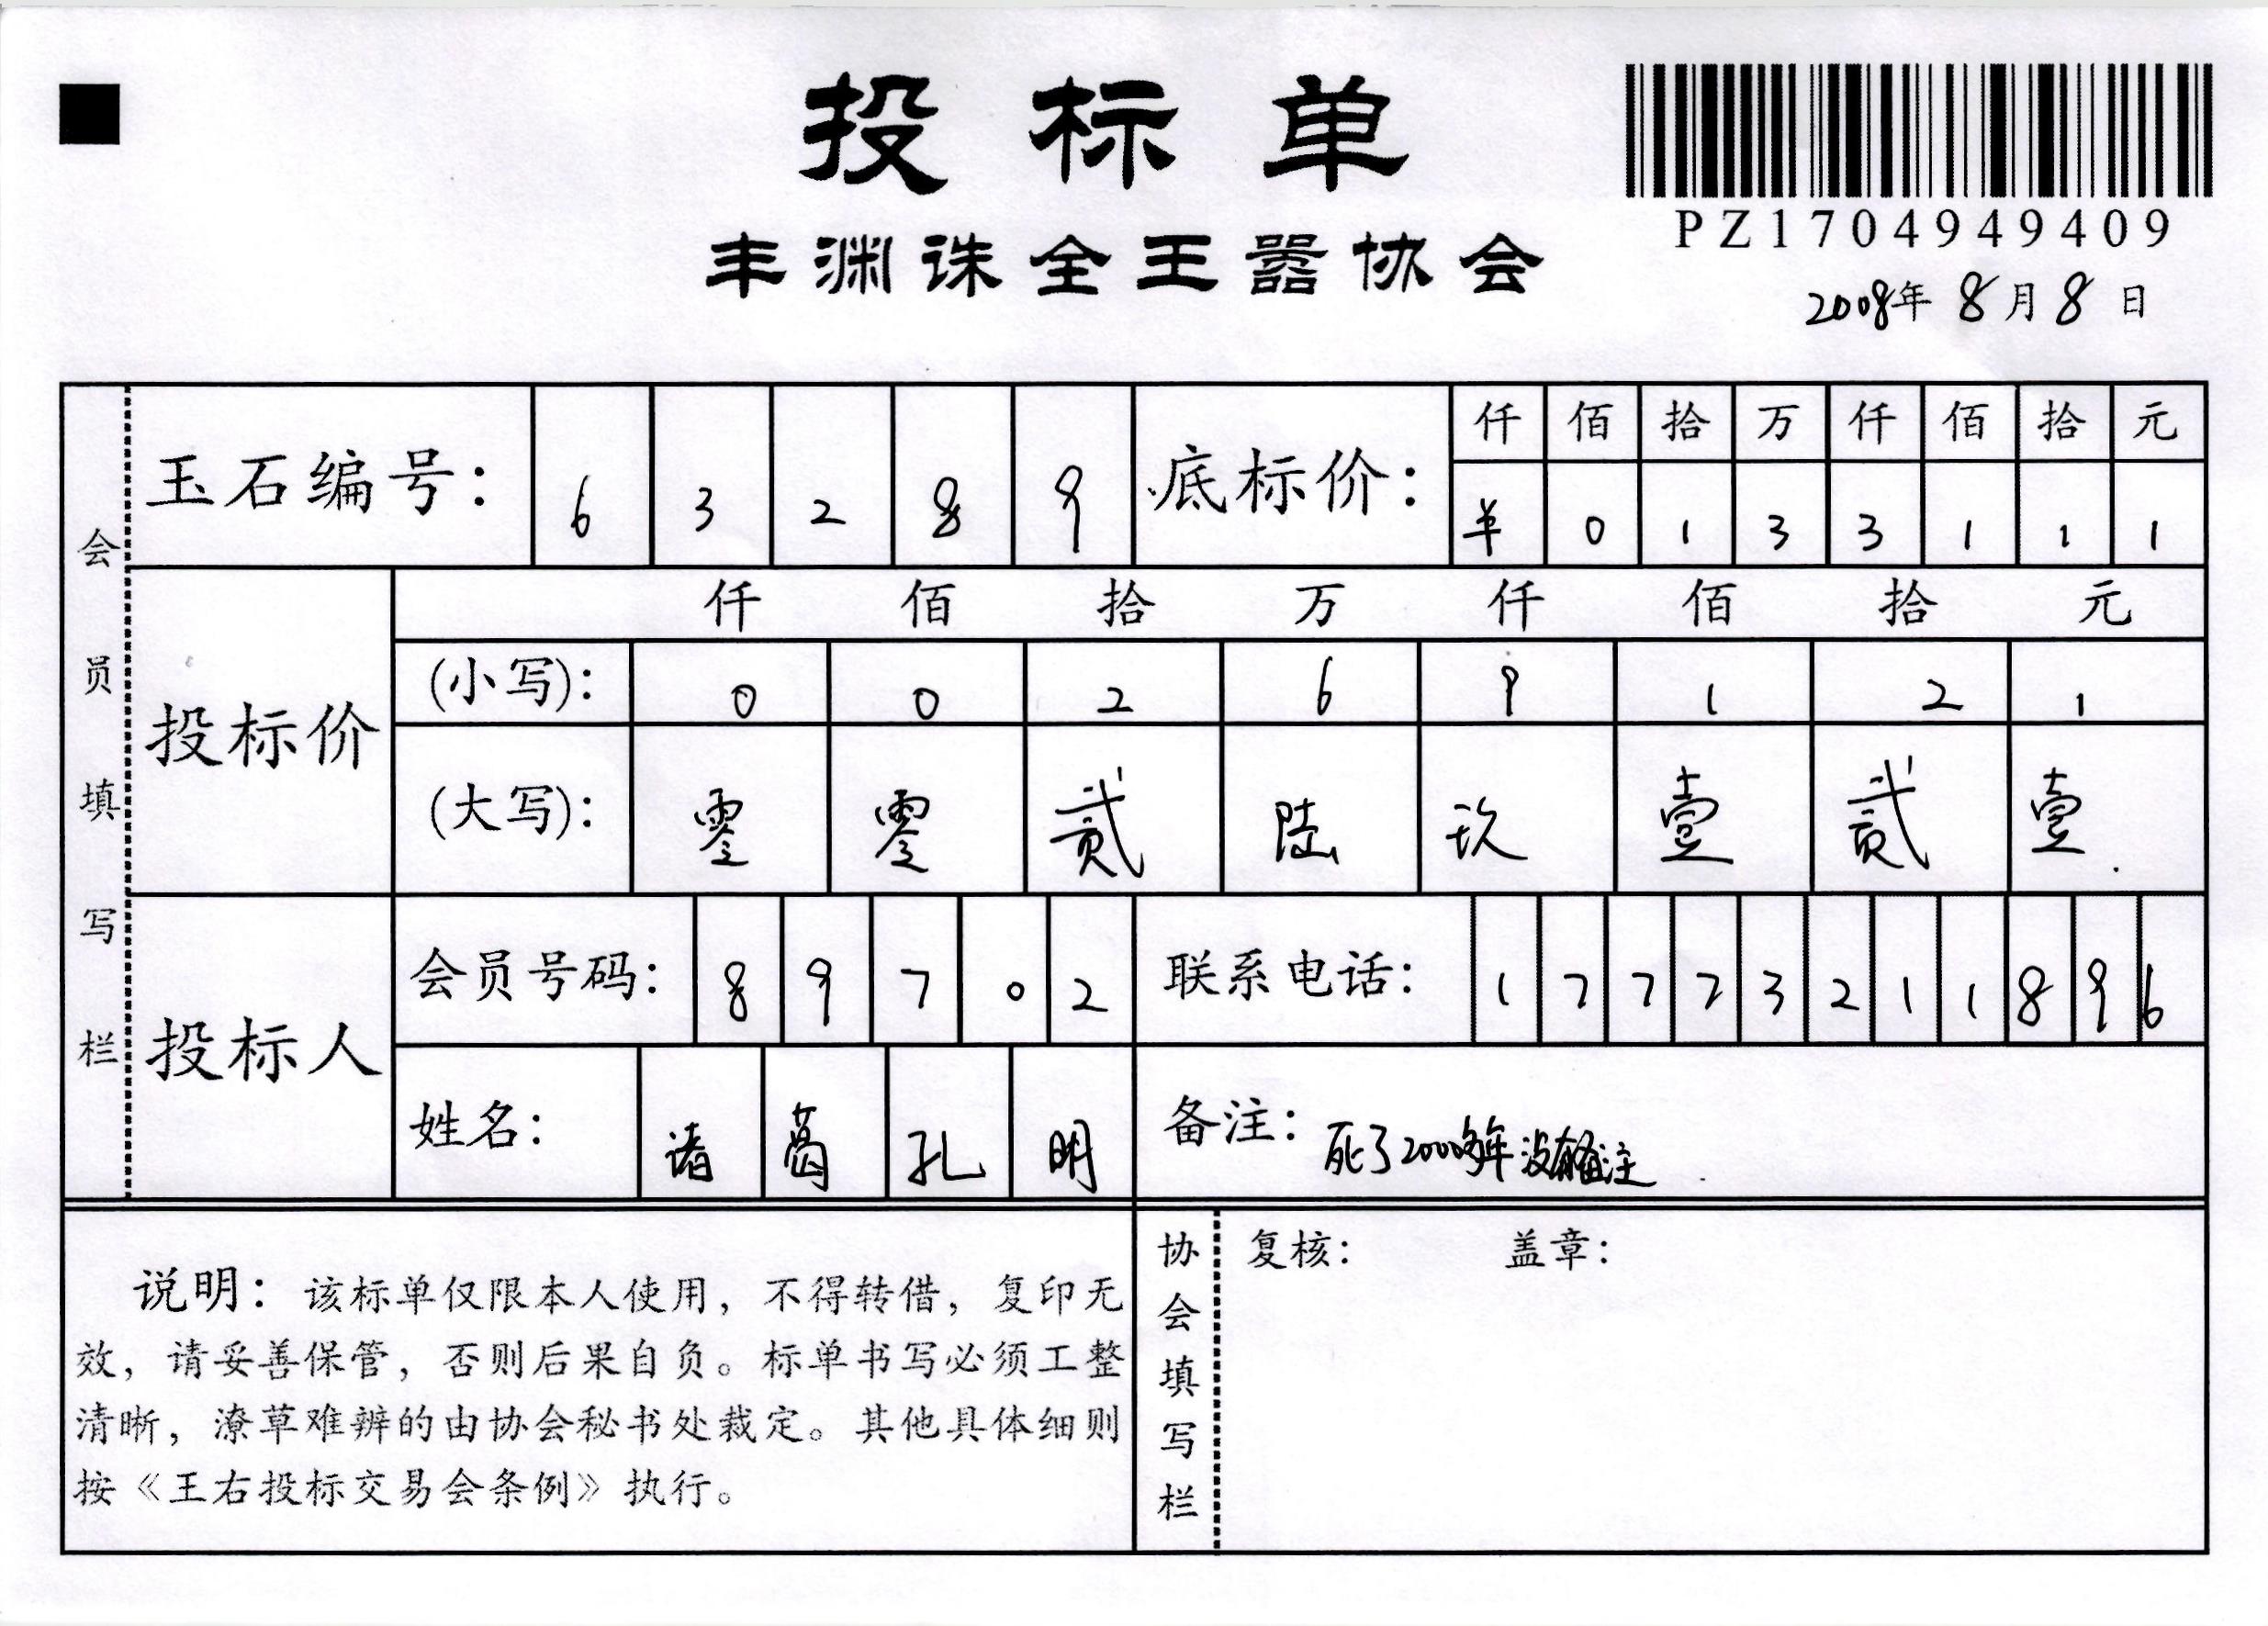 投标单
PZ1704949409
丰渊诛全王嚣协会
2008年 8月 8日
会员填写栏
玉石编号： 6 3 2 8 9
底标价： 仟 佰 拾 万 仟 佰 拾 元
¥ 0 1 3 3 1 1 1
投标价
仟 佰 拾 万 仟 佰 拾 元
(小写)： 0 0 2 6 9 1 2 1
(大写)： 零 零 贰 陆 玖 壹 贰 壹
投标人
会员号码： 8 9 7 0 2
联系电话： 1 7 7 7 3 2 1 1 8 9 6
姓名： 诸 葛 孔 明
备注： 死了2000多年没有备注
说明：该标单仅限本人使用，不得转借，复印无
效，请妥善保管，否则后果自负。标单书写必须工整
清晰，潦草难辨的由协会秘书处裁定。其他具体细则
按《王右投标交易会条例》执行。
协会填写栏
复核： 盖章：